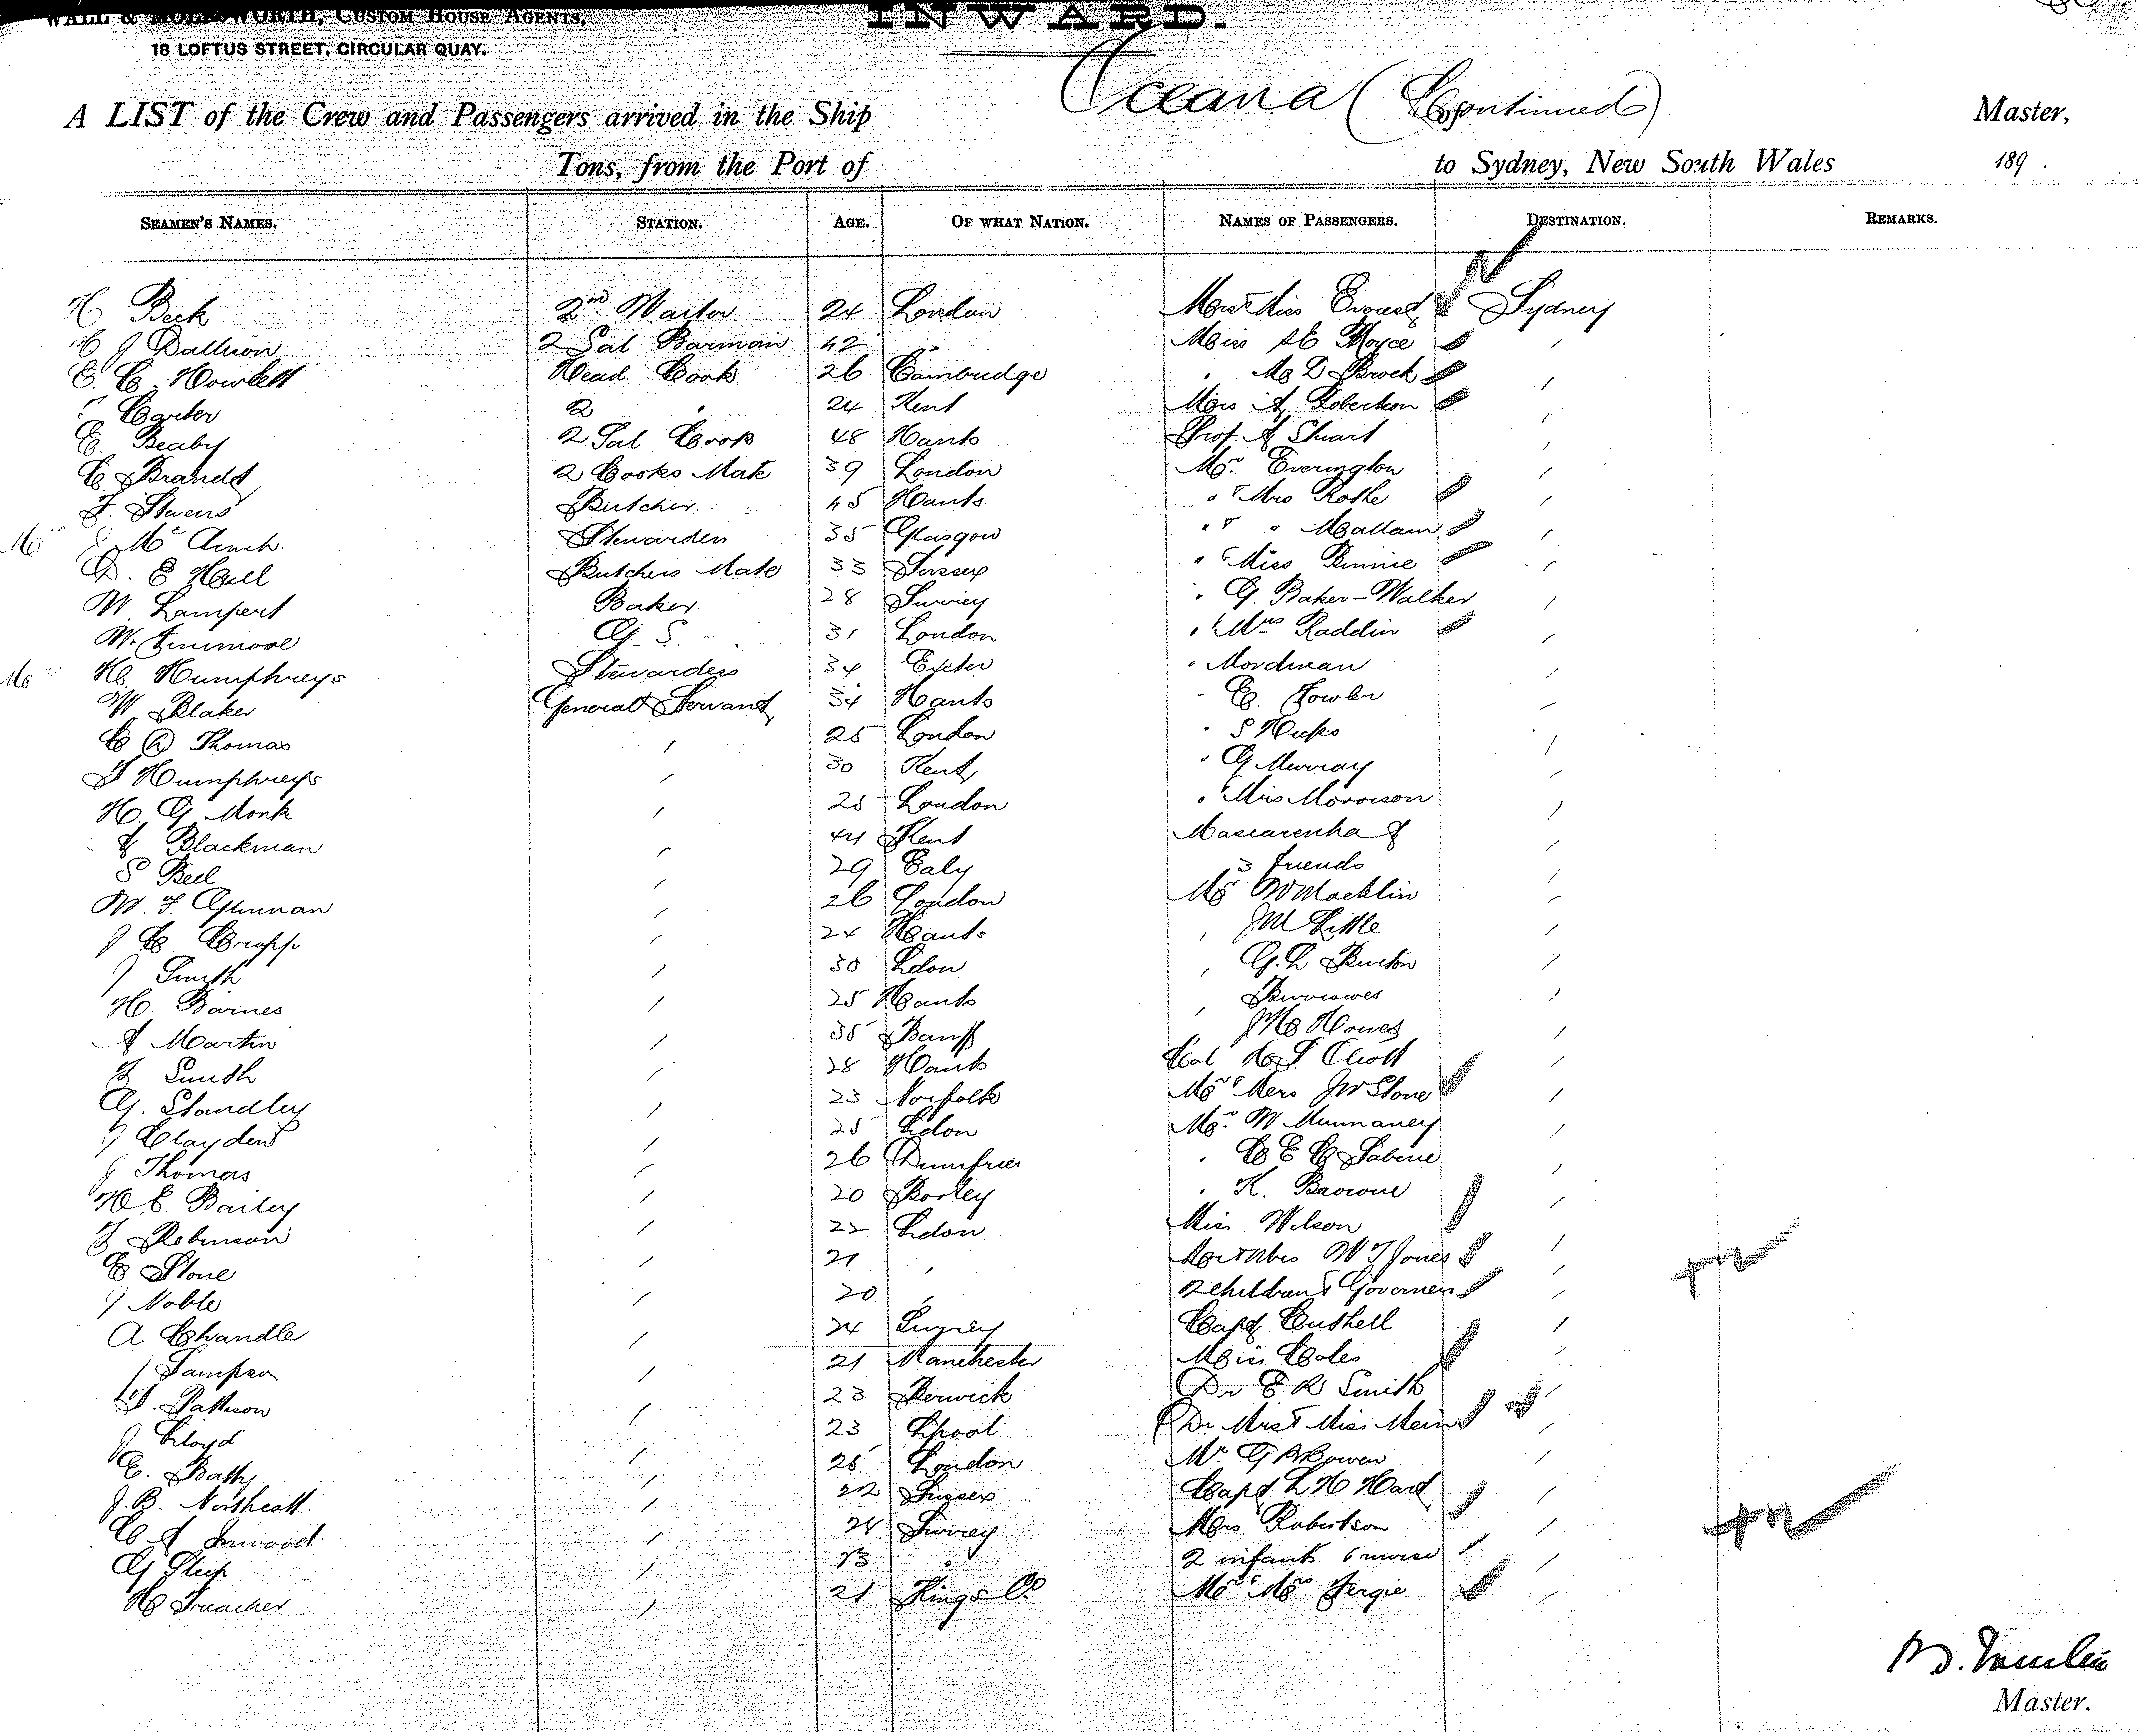 WALL & MOLLESWORTH, CUSTOM HOUSE AGENTS,
18 LOFTUS STREET, CIRCULAR QUAY.
INWARD.
A LIST of the Crew and Passengers arrived in the Ship Oceana (Continued) Master,
Tons, from the Port of to Sydney, New South Wales 189 .
SEAMEN'S NAMES. STATION. AGE. OF WHAT NATION. NAMES OF PASSENGERS. DESTINATION. REMARKS.
H Beck 2nd Waiter 24 London Mrs & Miss Everest Sydney
2 Sal Barman 42 " Miss
E C Howlett Head Cook 26 Cambridge " Brock
Carter 2 " 24 Kent Miss A Robertson
E. Beaby 2 Sal Cook 48 Hants Prof. A Stuart
C Brandt 2 Cooks Mate 39 London Mr. Everington
F. Stevens Butcher 45 Hants " & Mrs Rothe
Stewardess 35 Glasgow " & " Mallam
D. E Hall Butchers Mate 33 Sussex " & Miss Rennie
W Lampert Baker 28 Surrey " G. Baker-Walker
W. G. S. 31 London " & Mrs Raddin
Ms H. Humphreys Stewardess 34 Exeter " Mordman
W Blaker General Servant 34 Hants " E. Fowler
C A Thomas " 25 London " S
F Humphreys " 30 Kent " G Murray
H G Monk " 25 London " & Mrs Morrison
Blackman " 44 Kent Mascarenha &
S Bell " 29 Ealy 3 friends
W. F. " 26 London Mr W Macklin
J C Cripps " 24 Hants " J M Little
J Smith " 30 Ldon " G. L Burton
H. Barnes " 25 Hants "
A Martin " 35 Banff "
F Smith " 28 Hants Col
G. Standley " 23 Norfolk Mr & Mrs J W Stone
J Clayden " 25 Ldon Mr. W
J Thomas " 26 Dumfries " C E C Sabine
H E. Bailey " 20 " K. Browne
F Robinson " 22 Ldon Miss Wilson
E Stone " 21 " Mr & Mrs W T Jones
J Noble " 20 " 2 children & Governess
A Chandle " 24 Surrey Capt
J Sampson " 21 Manchester Miss Coles
Pattison " 23 Berwick Dr E R Smith
J Lloyd " 23 Lpool Dr Mrs & Miss Mein
E. Bath " 25 London Mr G Bowen
J. B. Northcott " 22 Sussex Capt L H Hart
C A Inwood " 24 Surrey Mrs Robertson
G " 23 " 2 infants & nurse
H Treacher " 21 Kings Co Mr & Mrs Fergie
Master.